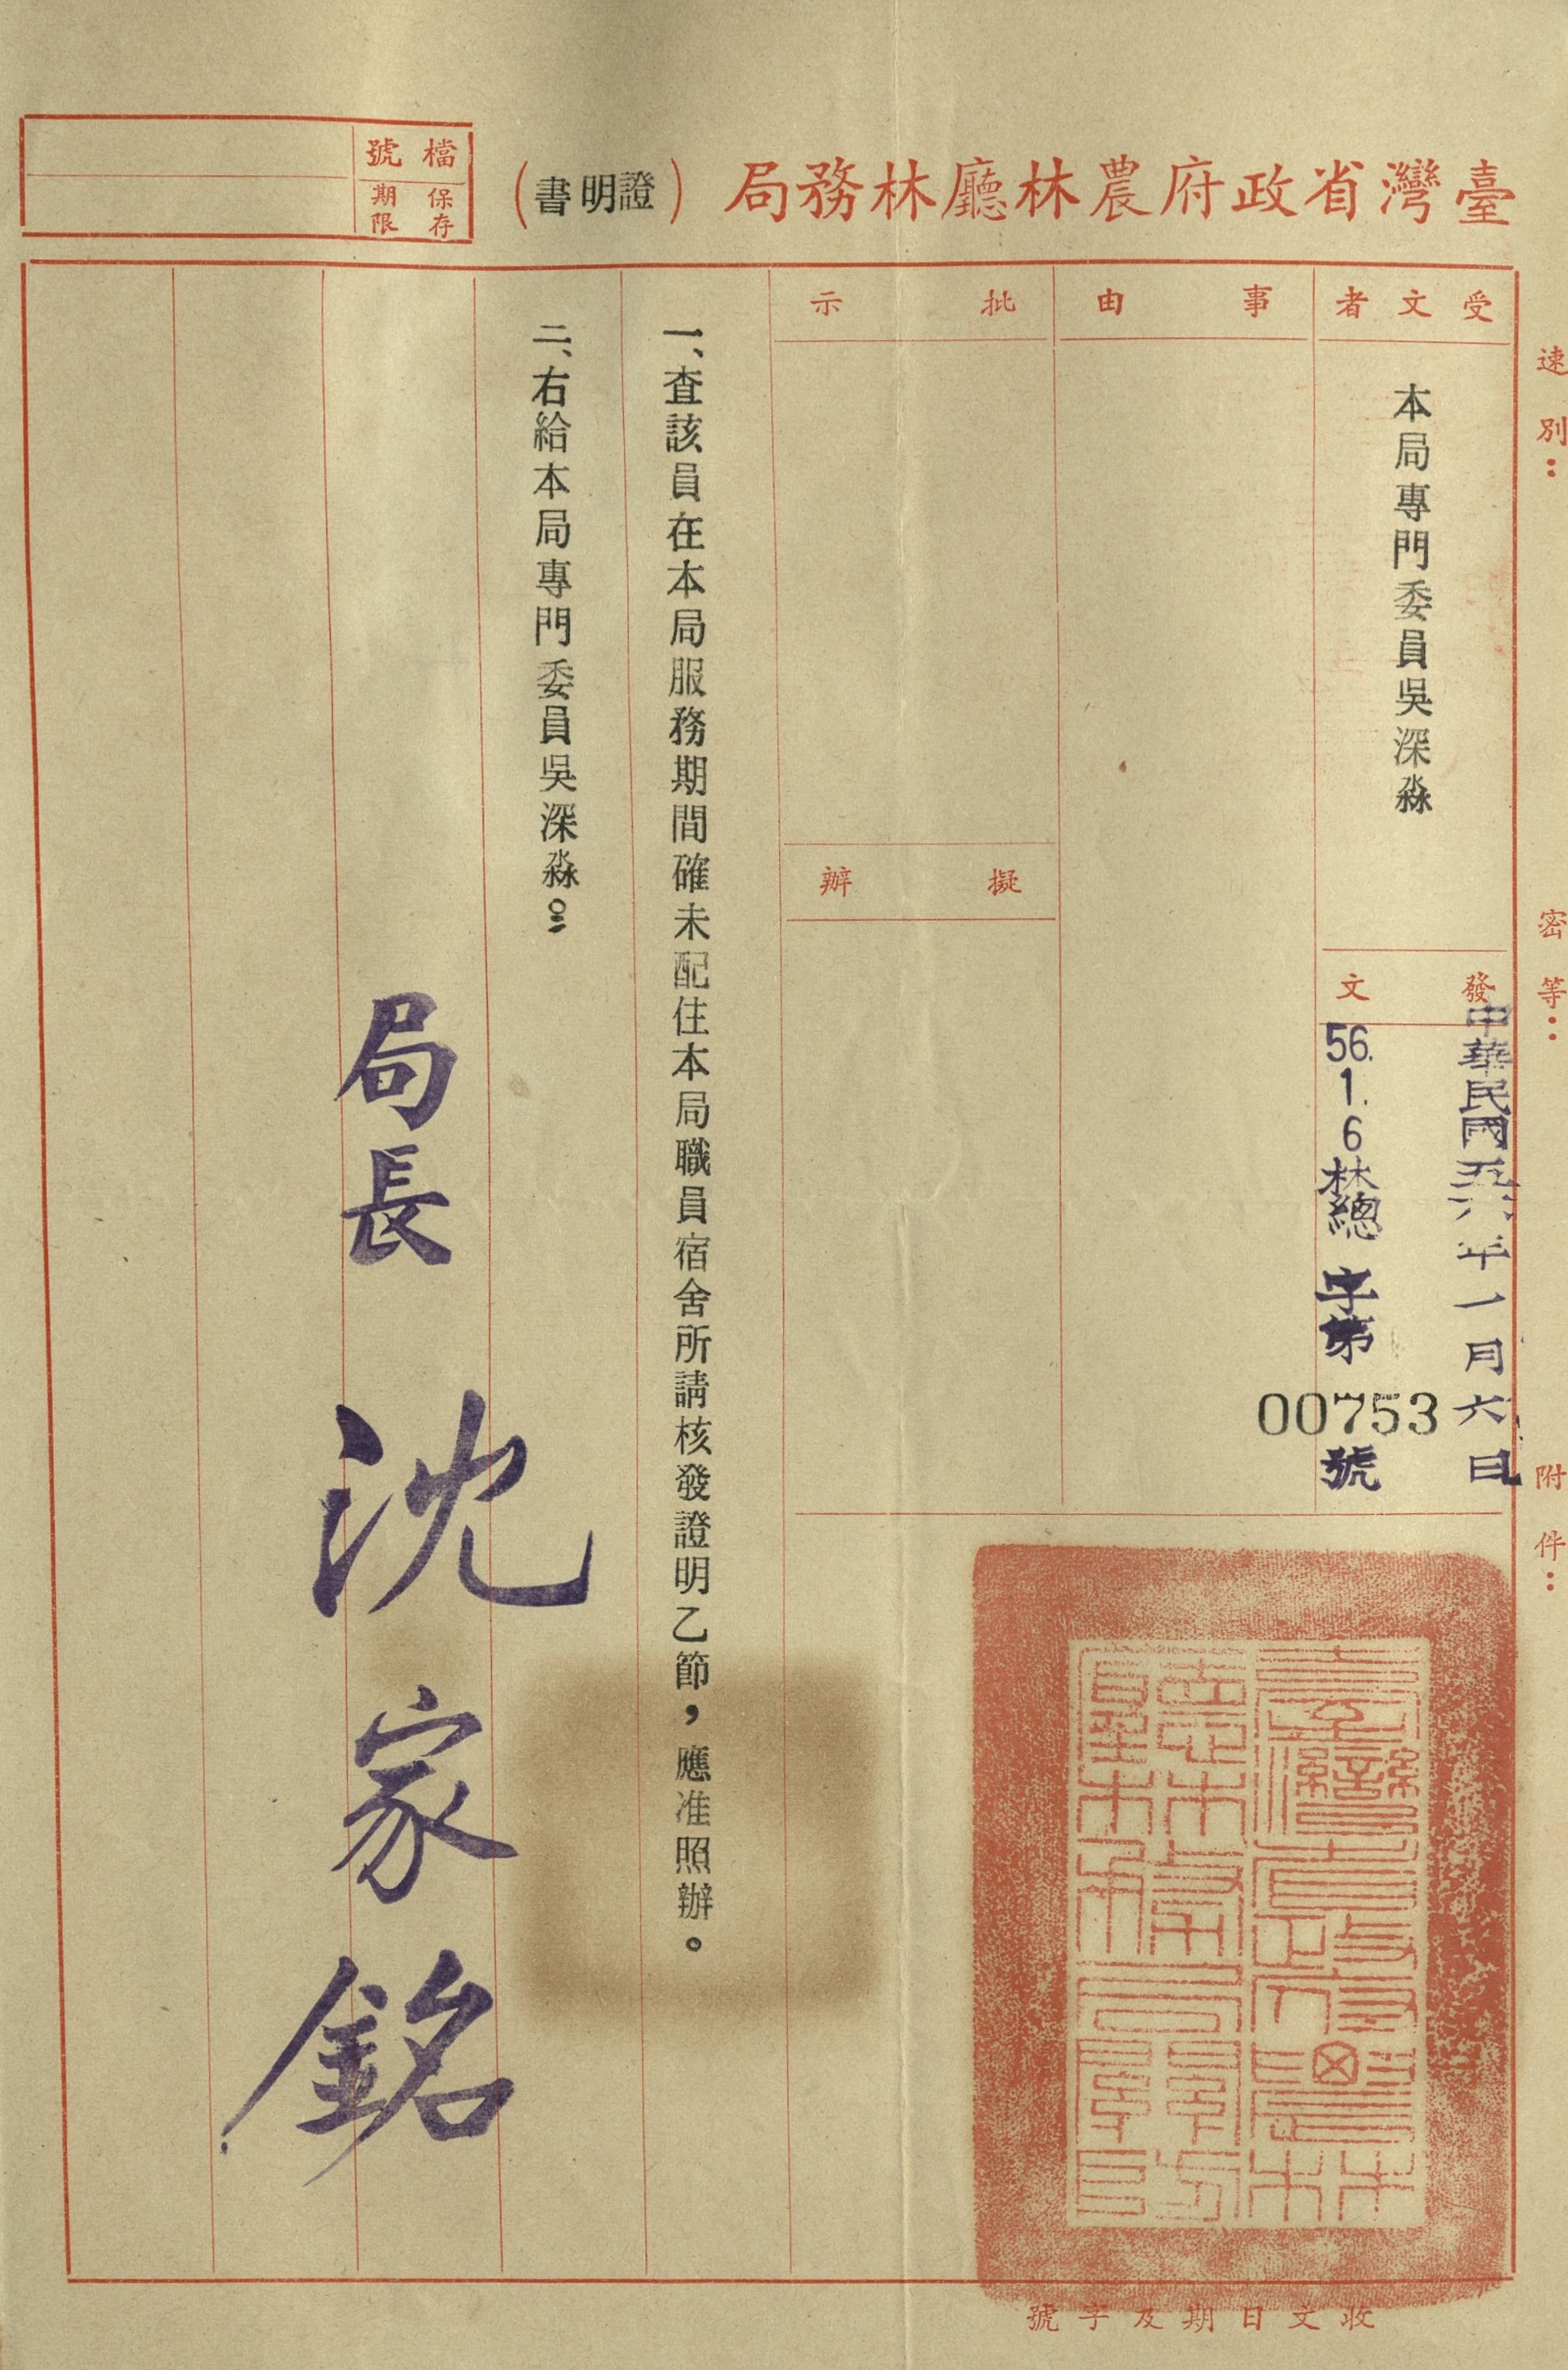 臺灣省政府農林廳林務局
（證明書）
檔號
保存期限
速別：
密等：
附件：
受文者
本局專門委員吳深淼
發文
中華民國五六年一月六日
56.1.6林總字第00753號
事由
批示
擬辦
一、查該員在本局服務期間確未配住本局職員宿舍所請核發證明乙節，應准照辦。
二、右給本局專門委員吳深淼。
局長 沈家銘
收文日期及字號